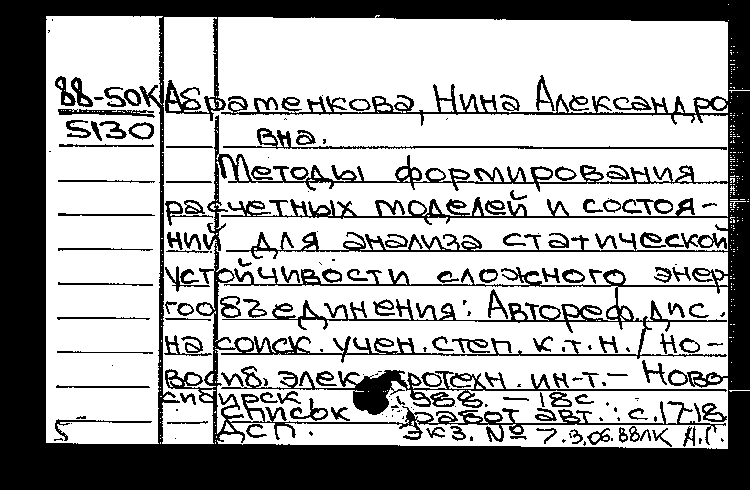 88-50К Абраменкова, Нина Александро
5130 вна.
Методы формирования
расчетных моделей и состоя-
ний для анализа статической
устойчивости сложного энер
гообъединения: Автореф. дис.
на соиск. учен. степ. к.т.н. / Но-
восиб. электротехн. ин-т. – Ново
сибирск 1988. – 18с.
Список работ авт.: с. 17-18
Дсп. Экз. № 7. 3.06.88